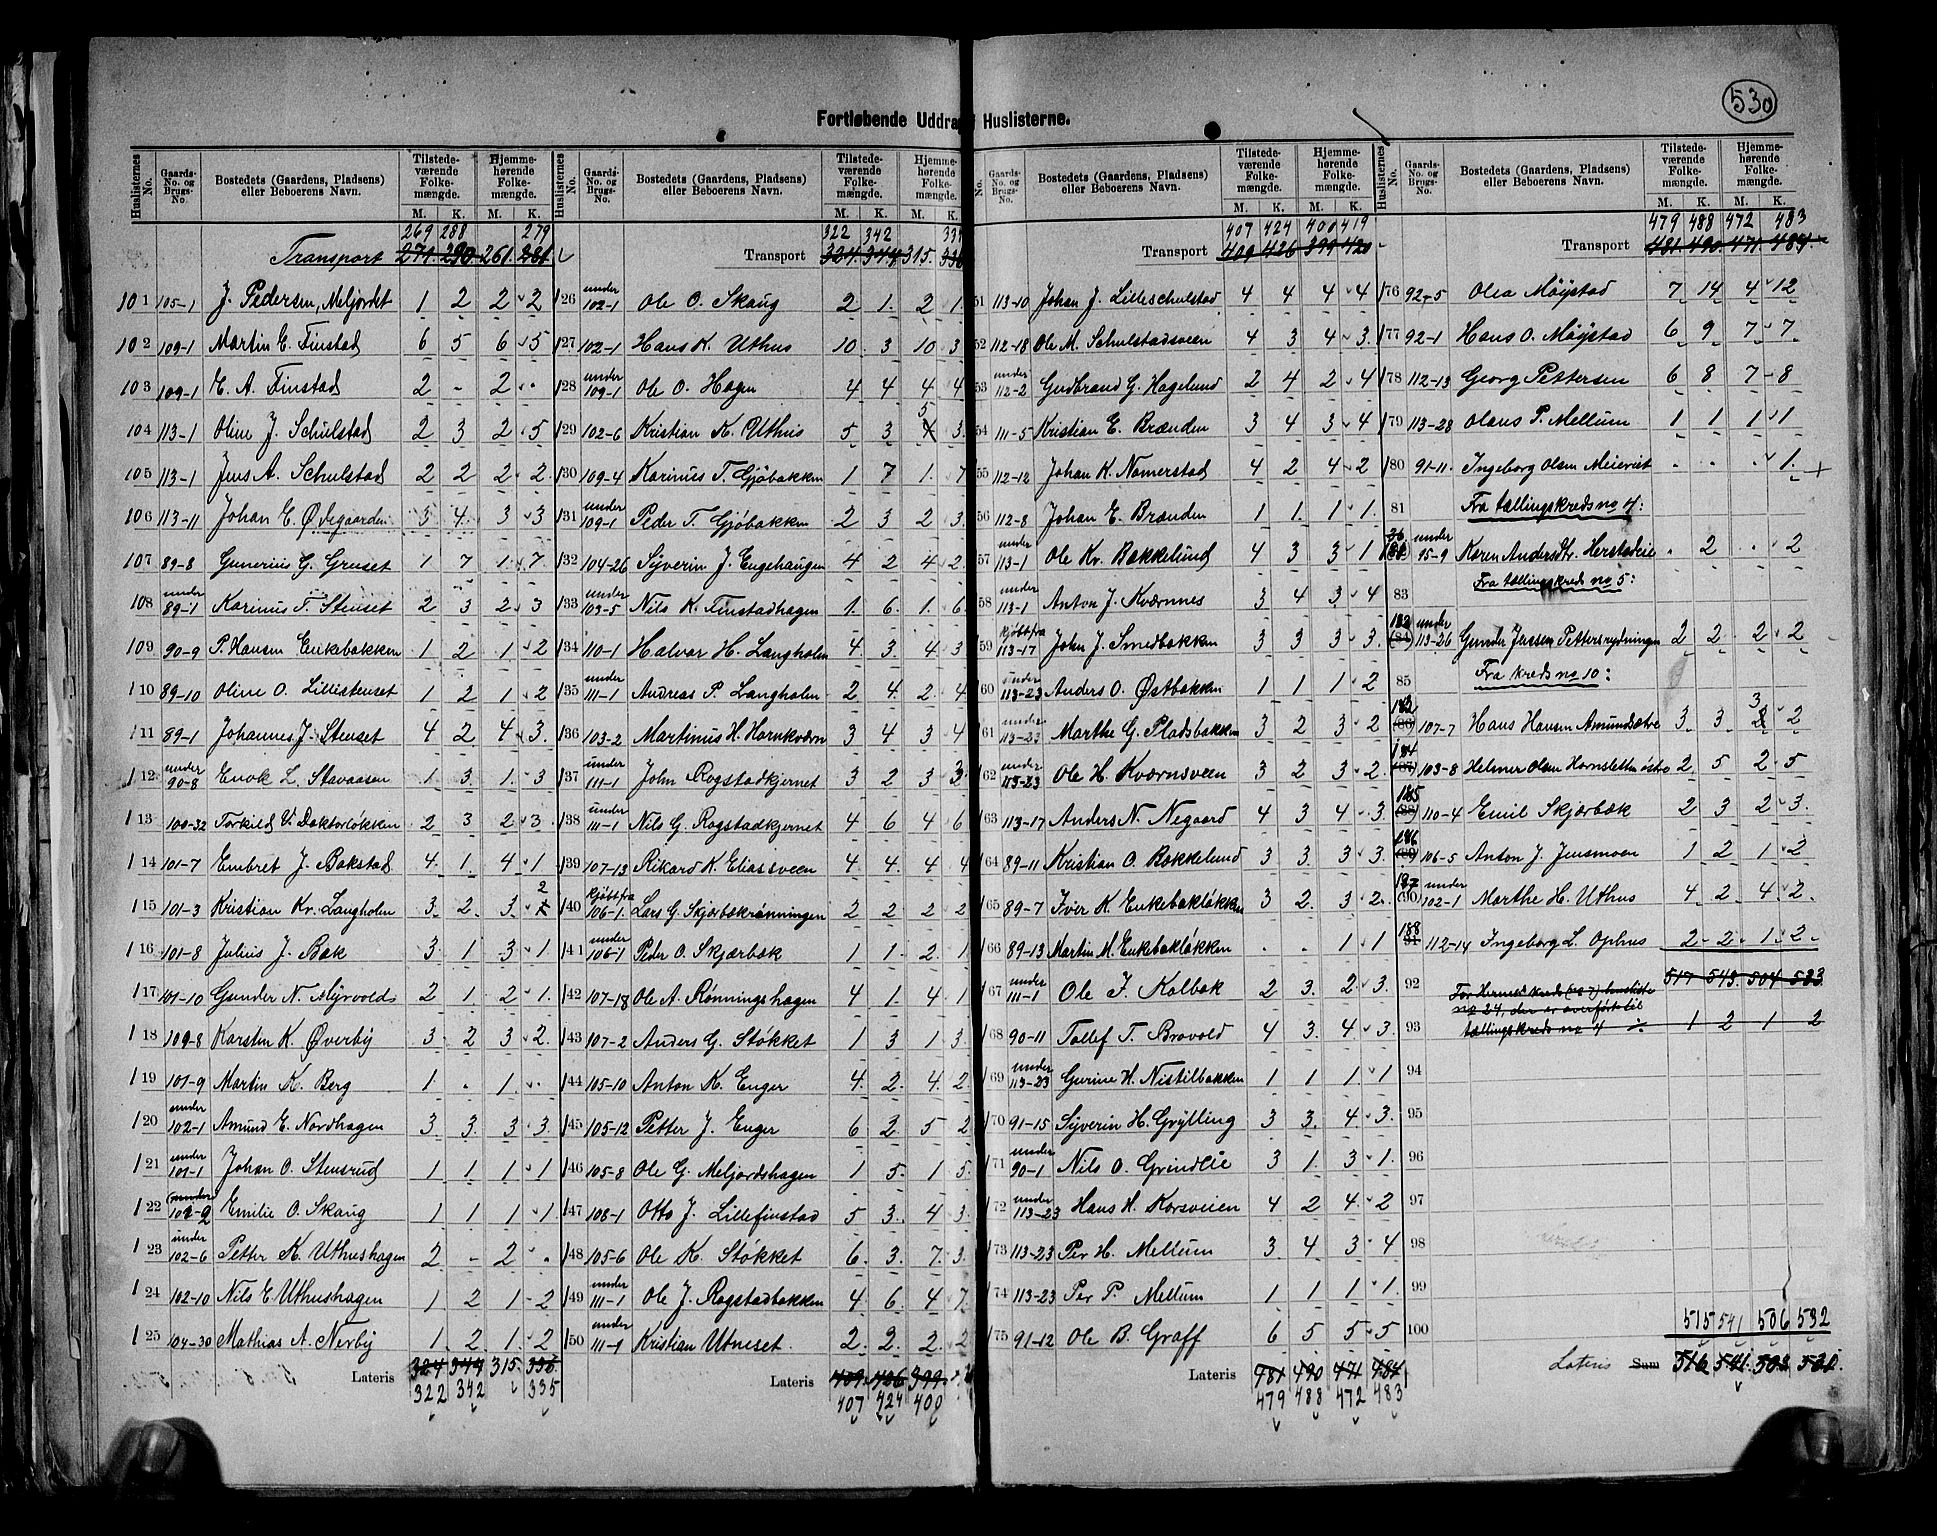 530
Fortløbende Uddra Huslisterne.
Huslisternes No. | Gaards-No. og Brugs-No. | Bostedets (Gaardens, Pladsens) eller Beboerens Navn. | Tilstedeværende Folkemængde. M. K. | Hjemmehørende Folkemængde. M. K.
269 288 279
Transport 271. 290. 261. 281.
101 105-1 J. Pedersen, Meljordet 1 2 2 2
102 109-1 Martin E. Finstad 6 5 6 5
103 109-1 E. A. Finstad 2 - 2 -
104 113-1 Oline J. Schulstad 2 3 2 5
105 113-1 Jens A. Schulstad 2 2 2 2
106 113-11 Johan E. Ødegaarden 3 4 3 3
107 89-8 Gunerius G. Gruset 1 7 1 7
108 under 89-1 Karinus T. Stenset 2 3 2 3
109 90-9 P. Hansen Enkebakken 1 2 1 2
110 89-10 Oline O. Lillestenset 1 2 1 2
111 89-1 Johannes J. Stenset 4 2 4 3
112 under 90-8 Enok L. Stavaasen 1 3 1 3
113 100-32 Torkild V. Doktorløkken 2 3 2 3
114 101-7 Embret J. Bakstad 4 1 4 1
115 101-3 Kristian Kr. Langholen 3 2 3 2
116 101-8 Julius J. Bak 3 1 3 1
117 101-10 Gunder N. Myrvold 2 1 2 1
118 109-8 Karsten K. Øverby 3 2 3 2
119 101-9 Martin K. Berg 1 - 1 -
120 under 102-1 Amund E. Nordhagen 3 3 3 3
121 under 101-1 Johan O. Stensrud 1 1 1 1
122 Emilie O. Skaug 1 1 1 1
123 under 102-6 Petter K. Uthushagen 2 - 2 -
124 102-10 Nils E. Uthushagen 1 2 1 2
125 104-30 Mathias A. Nerby 1 2 1 2
Lateris 324 344 315. 336
322 342 335
Huslisternes No. | Gaards-No. og Brugs-No. | Bostedets (Gaardens, Pladsens) eller Beboerens Navn. | Tilstedeværende Folkemængde. M. K. | Hjemmehørende Folkemængde. M. K.
322 342
Transport 324. 344. 315.
126 under 102-1 Ole O. Skaug 2 1 2 1
127 102-1 Hans K. Uthus 10 3 10 3
128 under 109-1 Ole O. Hagen 4 4 4 4
129 102-6 Kristian K. Uthus 5 3 5 3
130 109-4 Karinus T. Gjøbakken 1 7 1 7
131 under 109-1 Peder T. Gjøbakken 2 3 2 3
132 104-26 Syverin J. Engehaugen 4 2 4 2
133 under 103-5 Nils K. Finstadhagen 1 6 1 6
134 110-1 Halvor H. Langholen 4 3 4 3
135 under 111-1 Andreas P. Langholen 2 4 2 4
136 103-2 Martinus H. Hornkværn 3 4 3 4
137 under 111-1 John Rogstadkjernet 3 2 3 3
138 under 111-1 Nils G. Rogstadkjernet 4 6 4 6
139 107-13 Rikard K. Eliassveen 4 4 4 4
140 kjøbt fra 106-1 Lars G. Skjærbakrønningen 2 2 2 2
141 under 106-1 Peder O. Skjærbak 1 1 2 1
142 107-18 Ole A. Rønningshagen 4 1 4 1
143 107-2 Anders G. Støkket 1 3 1 3
144 105-10 Anton K. Enger 4 2 4 2
145 105-12 Petter J. Enger 6 2 5 2
146 105-8 Ole G. Meljordshagen 1 5 1 5
147 108-1 Otto J. Lillefinstad 5 3 4 3
148 105-6 Ole K. Støkket 6 3 7 3
149 under 111-1 Ole J. Rogstadbakken 4 6 4 7
150 under 111-1 Kristian Utneset 2 2 2 2
Lateris 409. 426 399.
407 424 400
No. | Gaards-No. og Brugs-No. | Bostedets (Gaardens, Pladsens) eller Beboerens Navn. | Tilstedeværende Folkemængde. M. K. | Hjemmehørende Folkemængde. M. K.
407 424 400 419
Transport 409 426 399 420
51 113-10 Johan J. Lilleschulstad 4 4 4 4
52 112-18 Ole M. Schulstadsveen 4 3 4 3
53 under 112-2 Gudbrand G. Hagelund 2 4 2 4
54 111-5 Kristian E. Brænden 3 4 3 4
55 112-12 Johan K. Nomerstad 4 2 4 2
56 112-8 Johan E. Brænden 1 1 1 1
57 under 113-1 Ole Kr. Bakkelund 4 3 3 1
58 under 113-1 Anton J. Kværnnes 3 4 3 4
59 kjøbt fra 113-17 John J. Smedbakken 3 3 3 3
60 under 113-23 Anders O. Østbakken 1 1 1 2
61 under 113-23 Marthe G. Pladsbakken 3 2 3 2
62 under 113-23 Ole H. Kværnsveen 3 2 3 2
63 113-17 Anders N. Negaard 4 3 4 3
64 89-11 Kristian O. Bakkelund 3 3 3 3
65 89-7 Iver K. Enkebakløkken 3 2 3 2
66 89-13 Martin M. Enkebakløkken - - 1 1
67 under 111-1 Ole J. Kolbak 2 3 2 3
68 90-11 Tollef T. Brovold 4 3 4 3
69 under 113-23 Gurine H. Nistilbakken 1 1 1 1
70 91-15 Syverin H. Grylling 3 3 4 3
71 under 90-1 Nils O. Grindlie 3 1 3 1
72 under 113-23 Hans H. Korsveien 4 2 4 2
73 113-23 Per H. Mellum 3 4 3 4
74 113-23 Per P. Mellum 1 1 1 1
75 91-12 Ole B. Graff 6 5 5 5
Lateris 481 490 471 484
479 488 472 483
Huslisternes No. | Gaards-No. og Brugs-No. | Bostedets (Gaardens, Pladsens) eller Beboerens Navn. | Tilstedeværende Folkemængde. M. K. | Hjemmehørende Folkemængde. M. K.
479 488 472 483
Transport 481 490 471 484
176 92-5 Olea Møystad 7 14 4 12
177 92-1 Hans O. Møystad 6 9 7 7
178 112-13 Georg Pettersen 6 8 7 8
179 113-28 Olaus P. Mellum 1 1 1 1
180 91-11 Ingeborg Olsen Meierist - - - 1
81 Fra tællingskreds no 4:
under 95-9 Karen Andersdtr. Herstadeie - 2 - 2
Fra tællingskreds no 5:
83
182 (84) under 113-26 Gunder Jensen Pettersrydningen 2 2 2 2
Fra kreds no 10:
85
107-7 Hans Hansen Amundsætre 3 3 3 2
184 (87) 103-8 Helmer Olsen Hornsletten østre 2 5 2 5
185 (88) 110-4 Emil Skjærbak 2 3 2 3
186 (89) 106-5 Anton J. Jensmoen 1 2 1 2
187 (90) under 102-1 Marthe H. Uthus 4 2 4 2
188 91 112-14 Ingeborg L. Ophus 2 2 1 2
517 543 504 533
92
no 24, der er overført til
93 tællingskreds no 4 ÷ 1 2 1 2
94
95
96
97
98
99
100
515 541 506 532
Lateris Sum 516 541. 503 531.